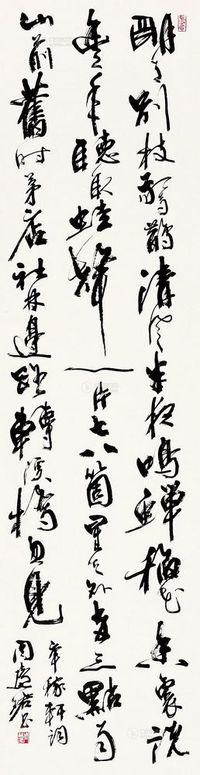 明月別枝驚鵲清風半夜鳴蟬稻花香裏說
豐年聽取蛙聲一片七八箇星天外兩三點雨
山前舊時茅店社林邊路轉溪橋忽見
辛稼軒詞
周慧珺书